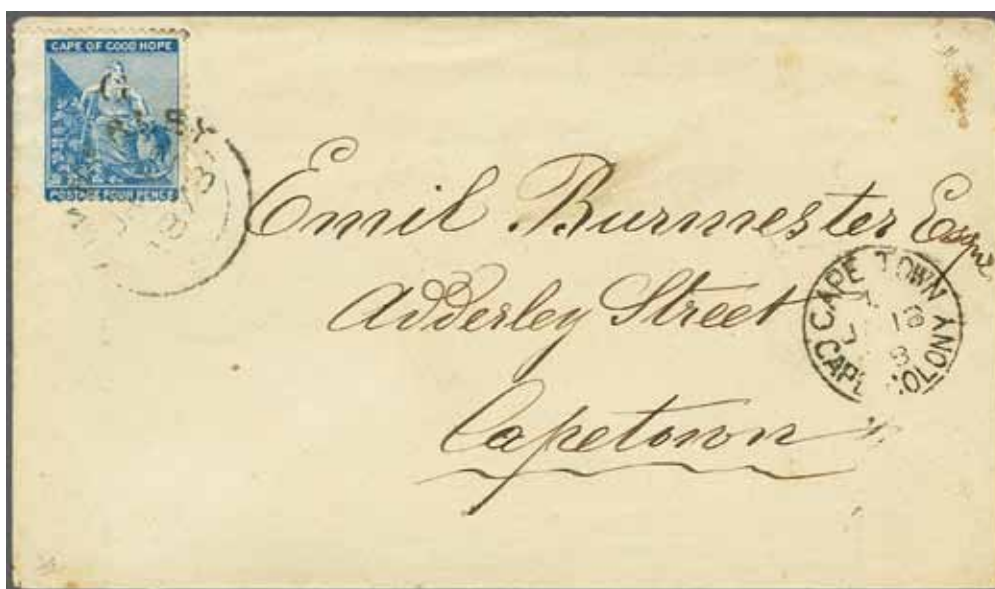 CAPE OF GOOD HOPE
G
POSTAGE FOUR PENCE
Emil Burmester Esqre
Adderley Street
Capetown
CAPE TOWN
18
8
CAPE COLONY